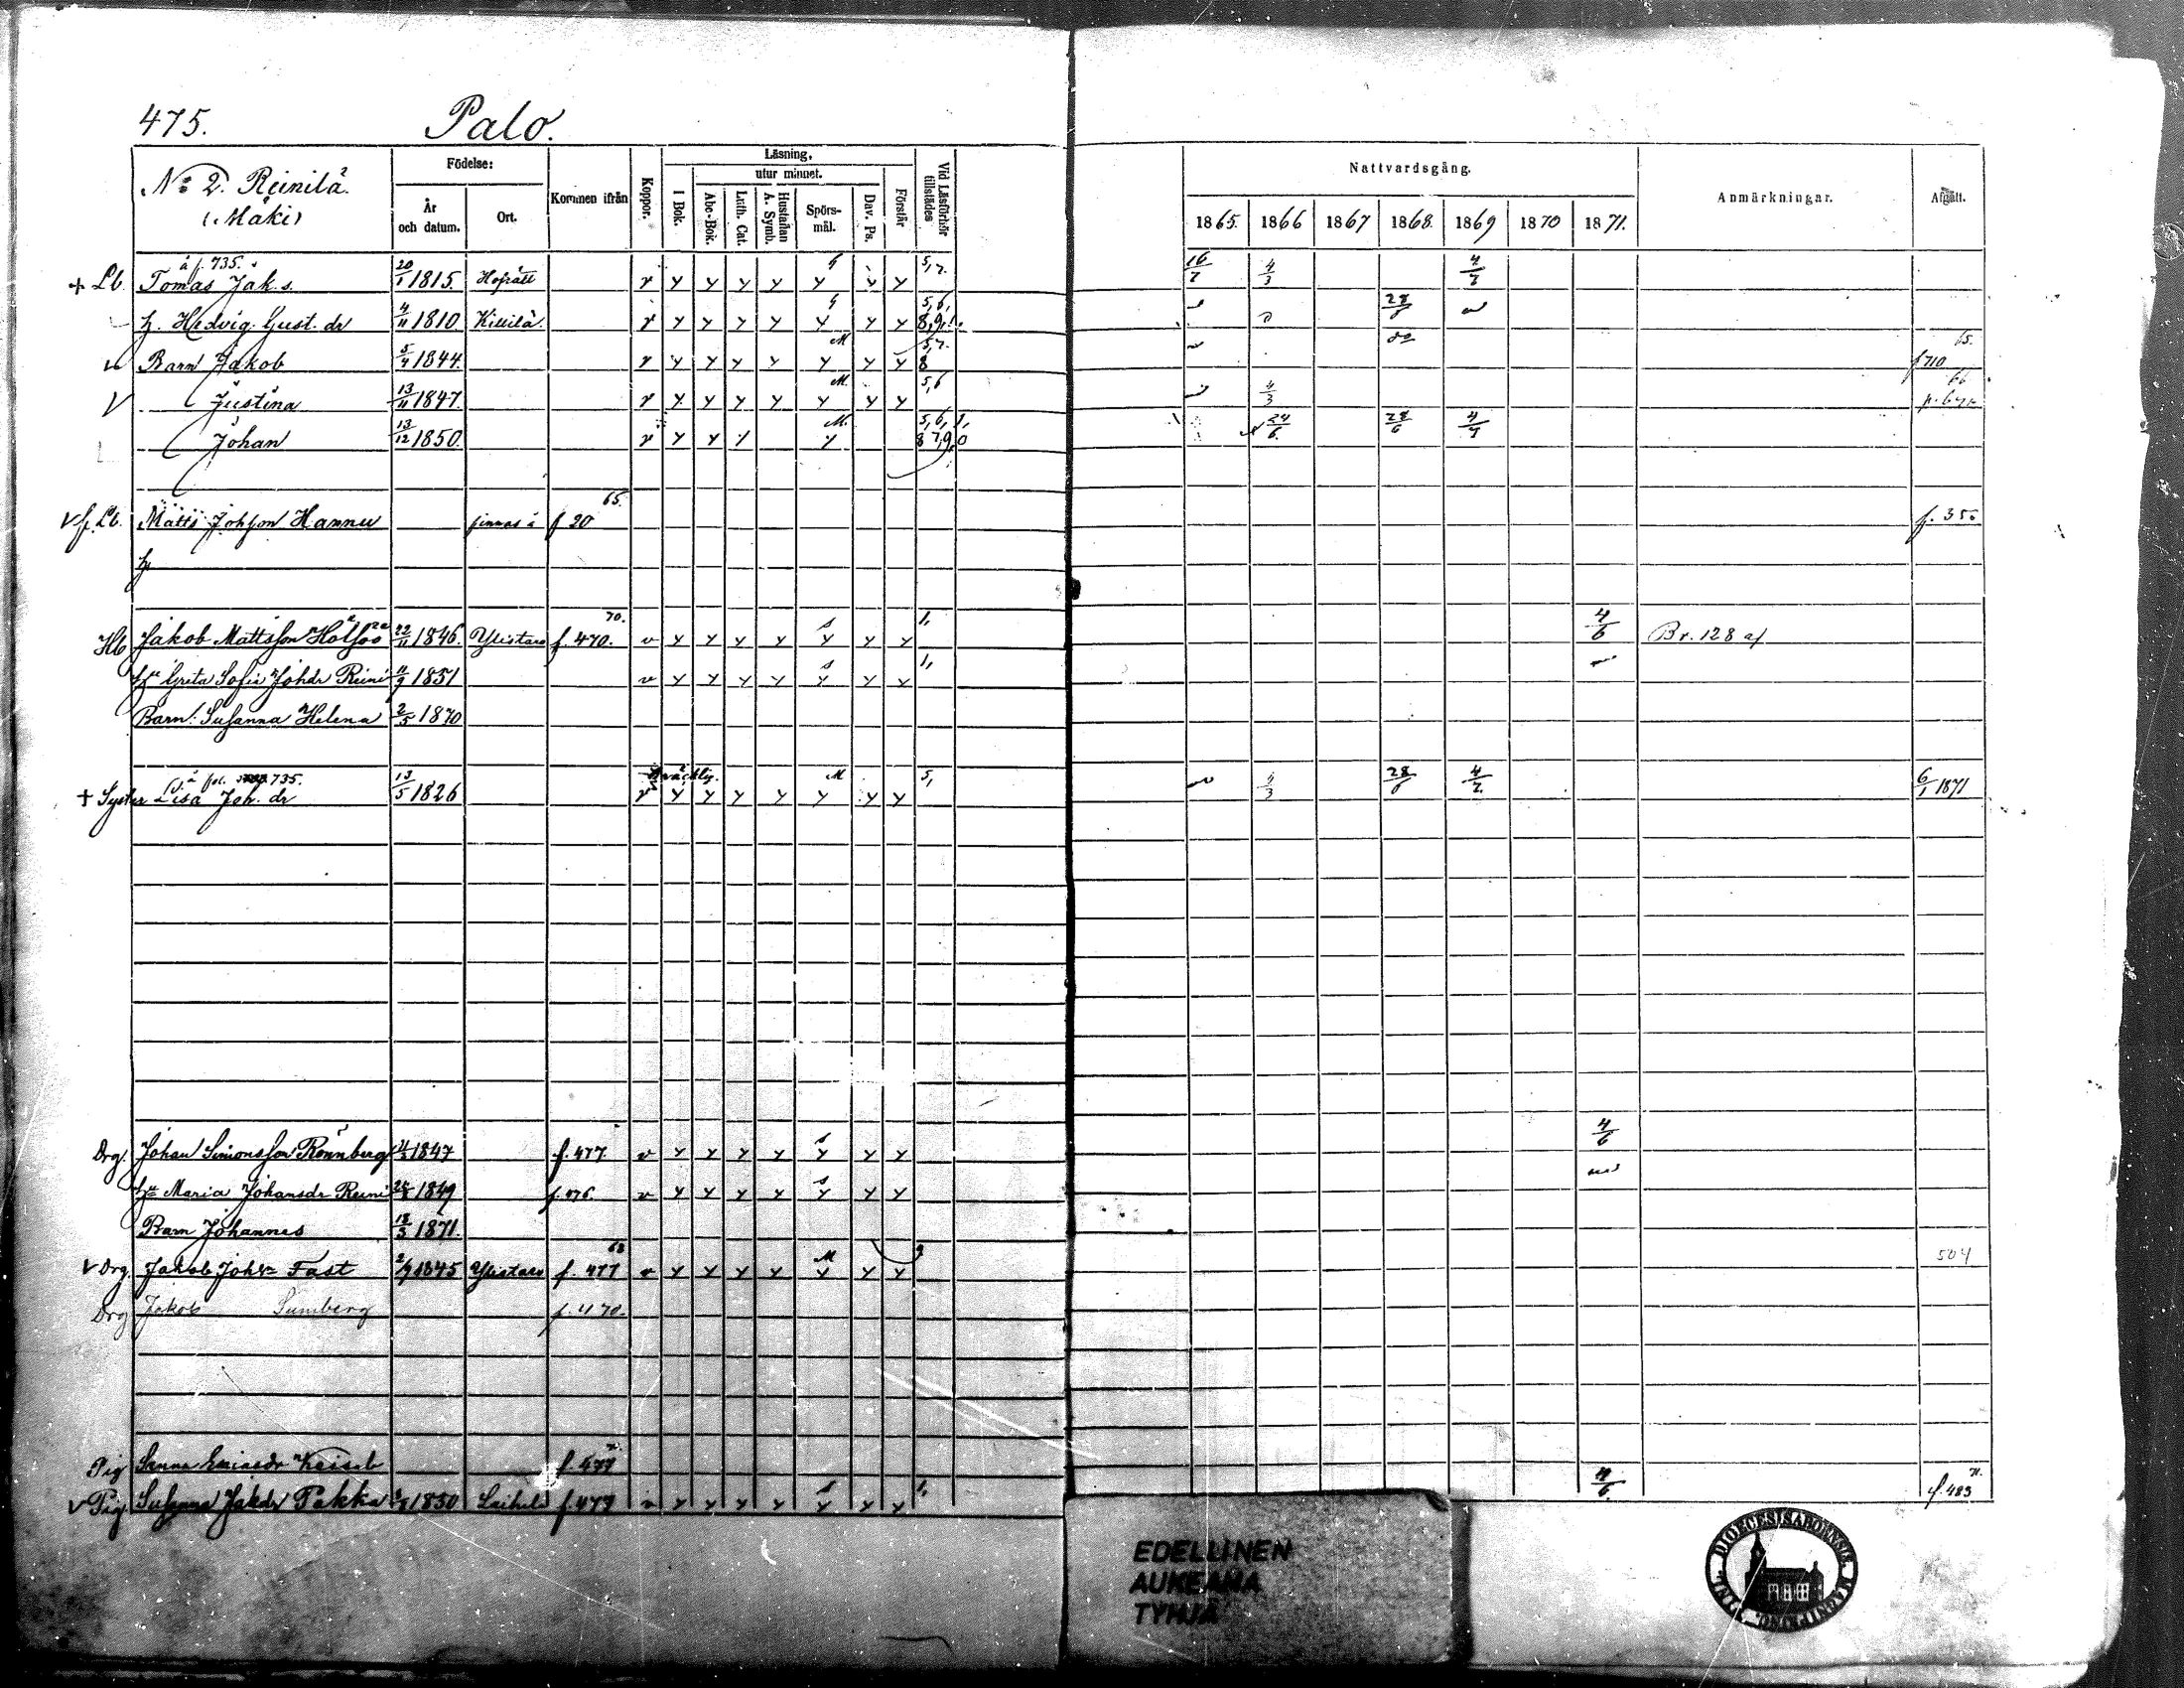 475. Palo.
No 2. Reinilä.
(Mäki)
Födelse:
År och datum.
Ort.
Kommen ifrån
Koppor.
Läsning,
utur minnet.
I Bok.
Abc-Bok.
Luth. Cat.
Hustaflan A. Symb.
Spörs-mål.
Dav. Ps.
Förstår
Vid Läsförhör tillstädes
Nattvardsgång.
1865. 1866 1867 1868. 1869 1870 1871.
Anmärkningar.
Afgått.
å f. 735.
+ Lb. Tomas Jak.s. 20/1 1815. v y y y y y y y 5,7. 16/7 4/3 4/7
h. Hedvig Gust. dr 4/11 1810 Killilä. v y y y y y y y 5,6, 8,9,1. 28/6
Barn Jakob 5/4 1844. v y y y y M y y y 5,7. 8 65. f 710
V Justina 13/11 1847. v y y y y M. y y y 5,6 4/3 66
Johan 13/12 1850. v y y M. y 5,6,1, 8 7,9,0 24/6. 28/6 4/7
V f. Lb. Matts Johsson Hannu finnas å f 20 65. f. 350
h.
Hb Jakob Mattsson 22/11 1846. Ylistaro f. 470. 70. v y y y y y y y 1, 4/6 Br. 128 af
hu Greta Sofia Johdr Reini 11/9 1851 v y y y y y y y 1,
Barn: Susanna Helena 2/5 1870
å fol. 735.
+ Syster Lisa Joh. dr 13/5 1826 v y y y y M y y y 5, 4/3 28/6 4/7. 6/1 1871
Drg. Johan Simonsson Rönnberg 1847 f. 477. v y y y y y y y 4/6
hu Maria Johansdr Reini 1849 f. 476. v y y y y y y y
Barn Johannes 13/3 1871.
V Drg. Jakob Johs Fast 2/9 1845 Ylistaro f. 477 68 v y y y y M y y y 504
Drg Jakob Sumberg f. 470.
Pig Sanna f. 477
V Pig Susanna Jakdr Pakka 1850 Laihela f. 477 v y y y y y y y 1, 4/6. f. 483 71.
EDELLINEN
AUKEAMA
TYHJÄ